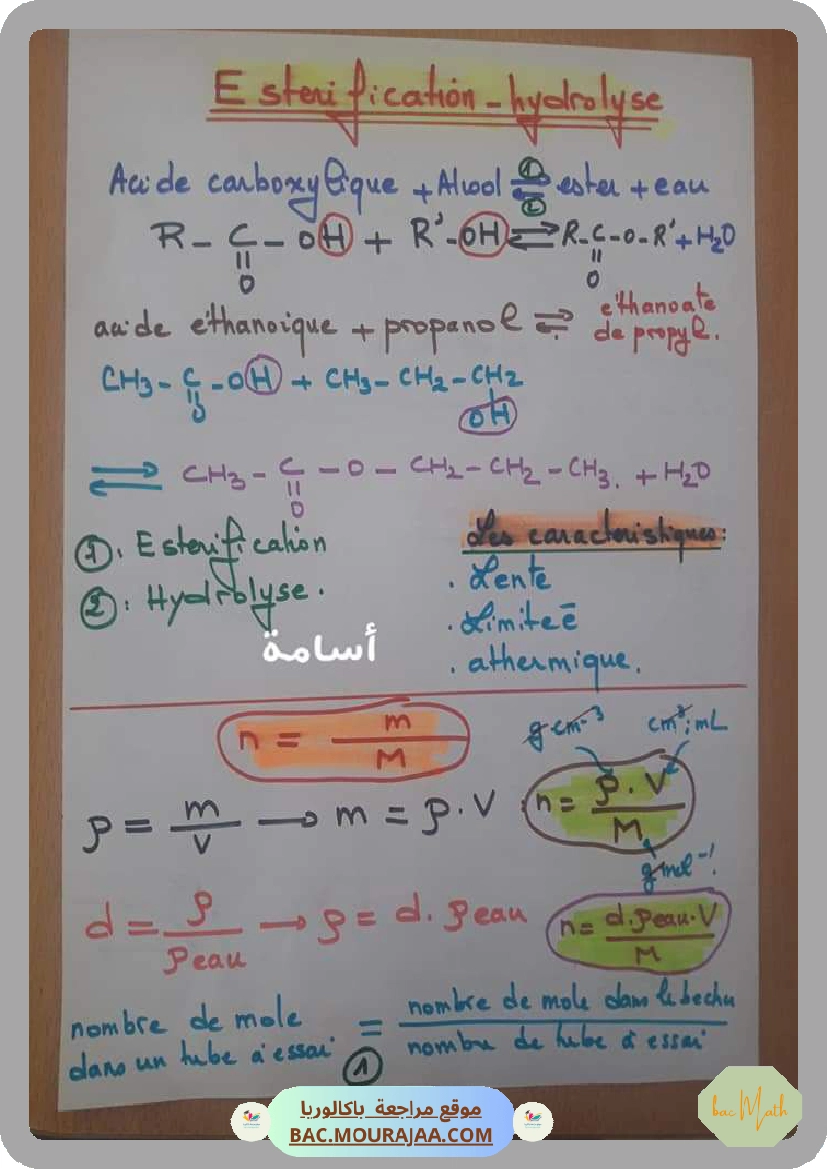 Esterification - hydrolyse
Acide carboxylique + Alcool ⇌ ester + eau
①
②
R - C - OH + R' - OH ⇌ R - C - O - R' + H2O
|| ||
O O
acide éthanoique + propanol ⇌ éthanoate
de propyl.
CH3 - C - OH + CH3 - CH2 - CH2
|| |
O OH
⇌ CH3 - C - O - CH2 - CH2 - CH3. + H2O
||
O
①: Esterification
②: Hydrolyse.
Les caracteristiques:
. Lente
. Limiteē
. athermique.
أسامة
n = m / M
ρ = m / V → m = ρ . V
g.cm-3 cm3; mL
n = ρ . V / M
g.mol-1
d = ρ / ρeau → ρ = d . ρeau
n = d . ρeau . V / M
nombre de mole
dans un tube à essai = nombre de mole dans le bechu / nombre de tube à essai
①
موقع مراجعة باكالوريا
BAC.MOURAJAA.COM
bac Math